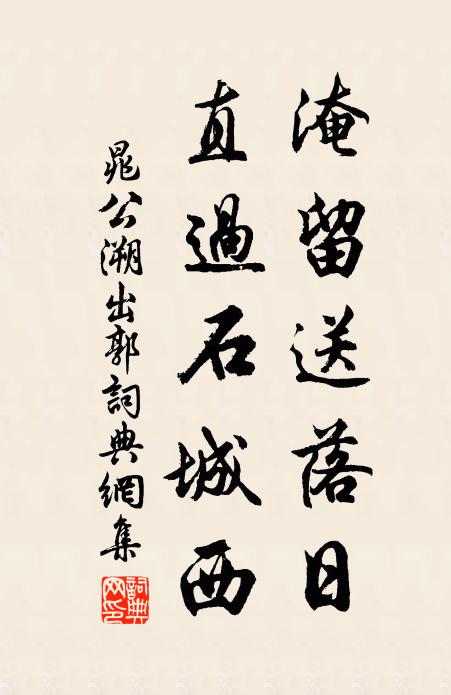 淹留送落日
直過石城西
晁公溯出郭詞典網集
詞典網印